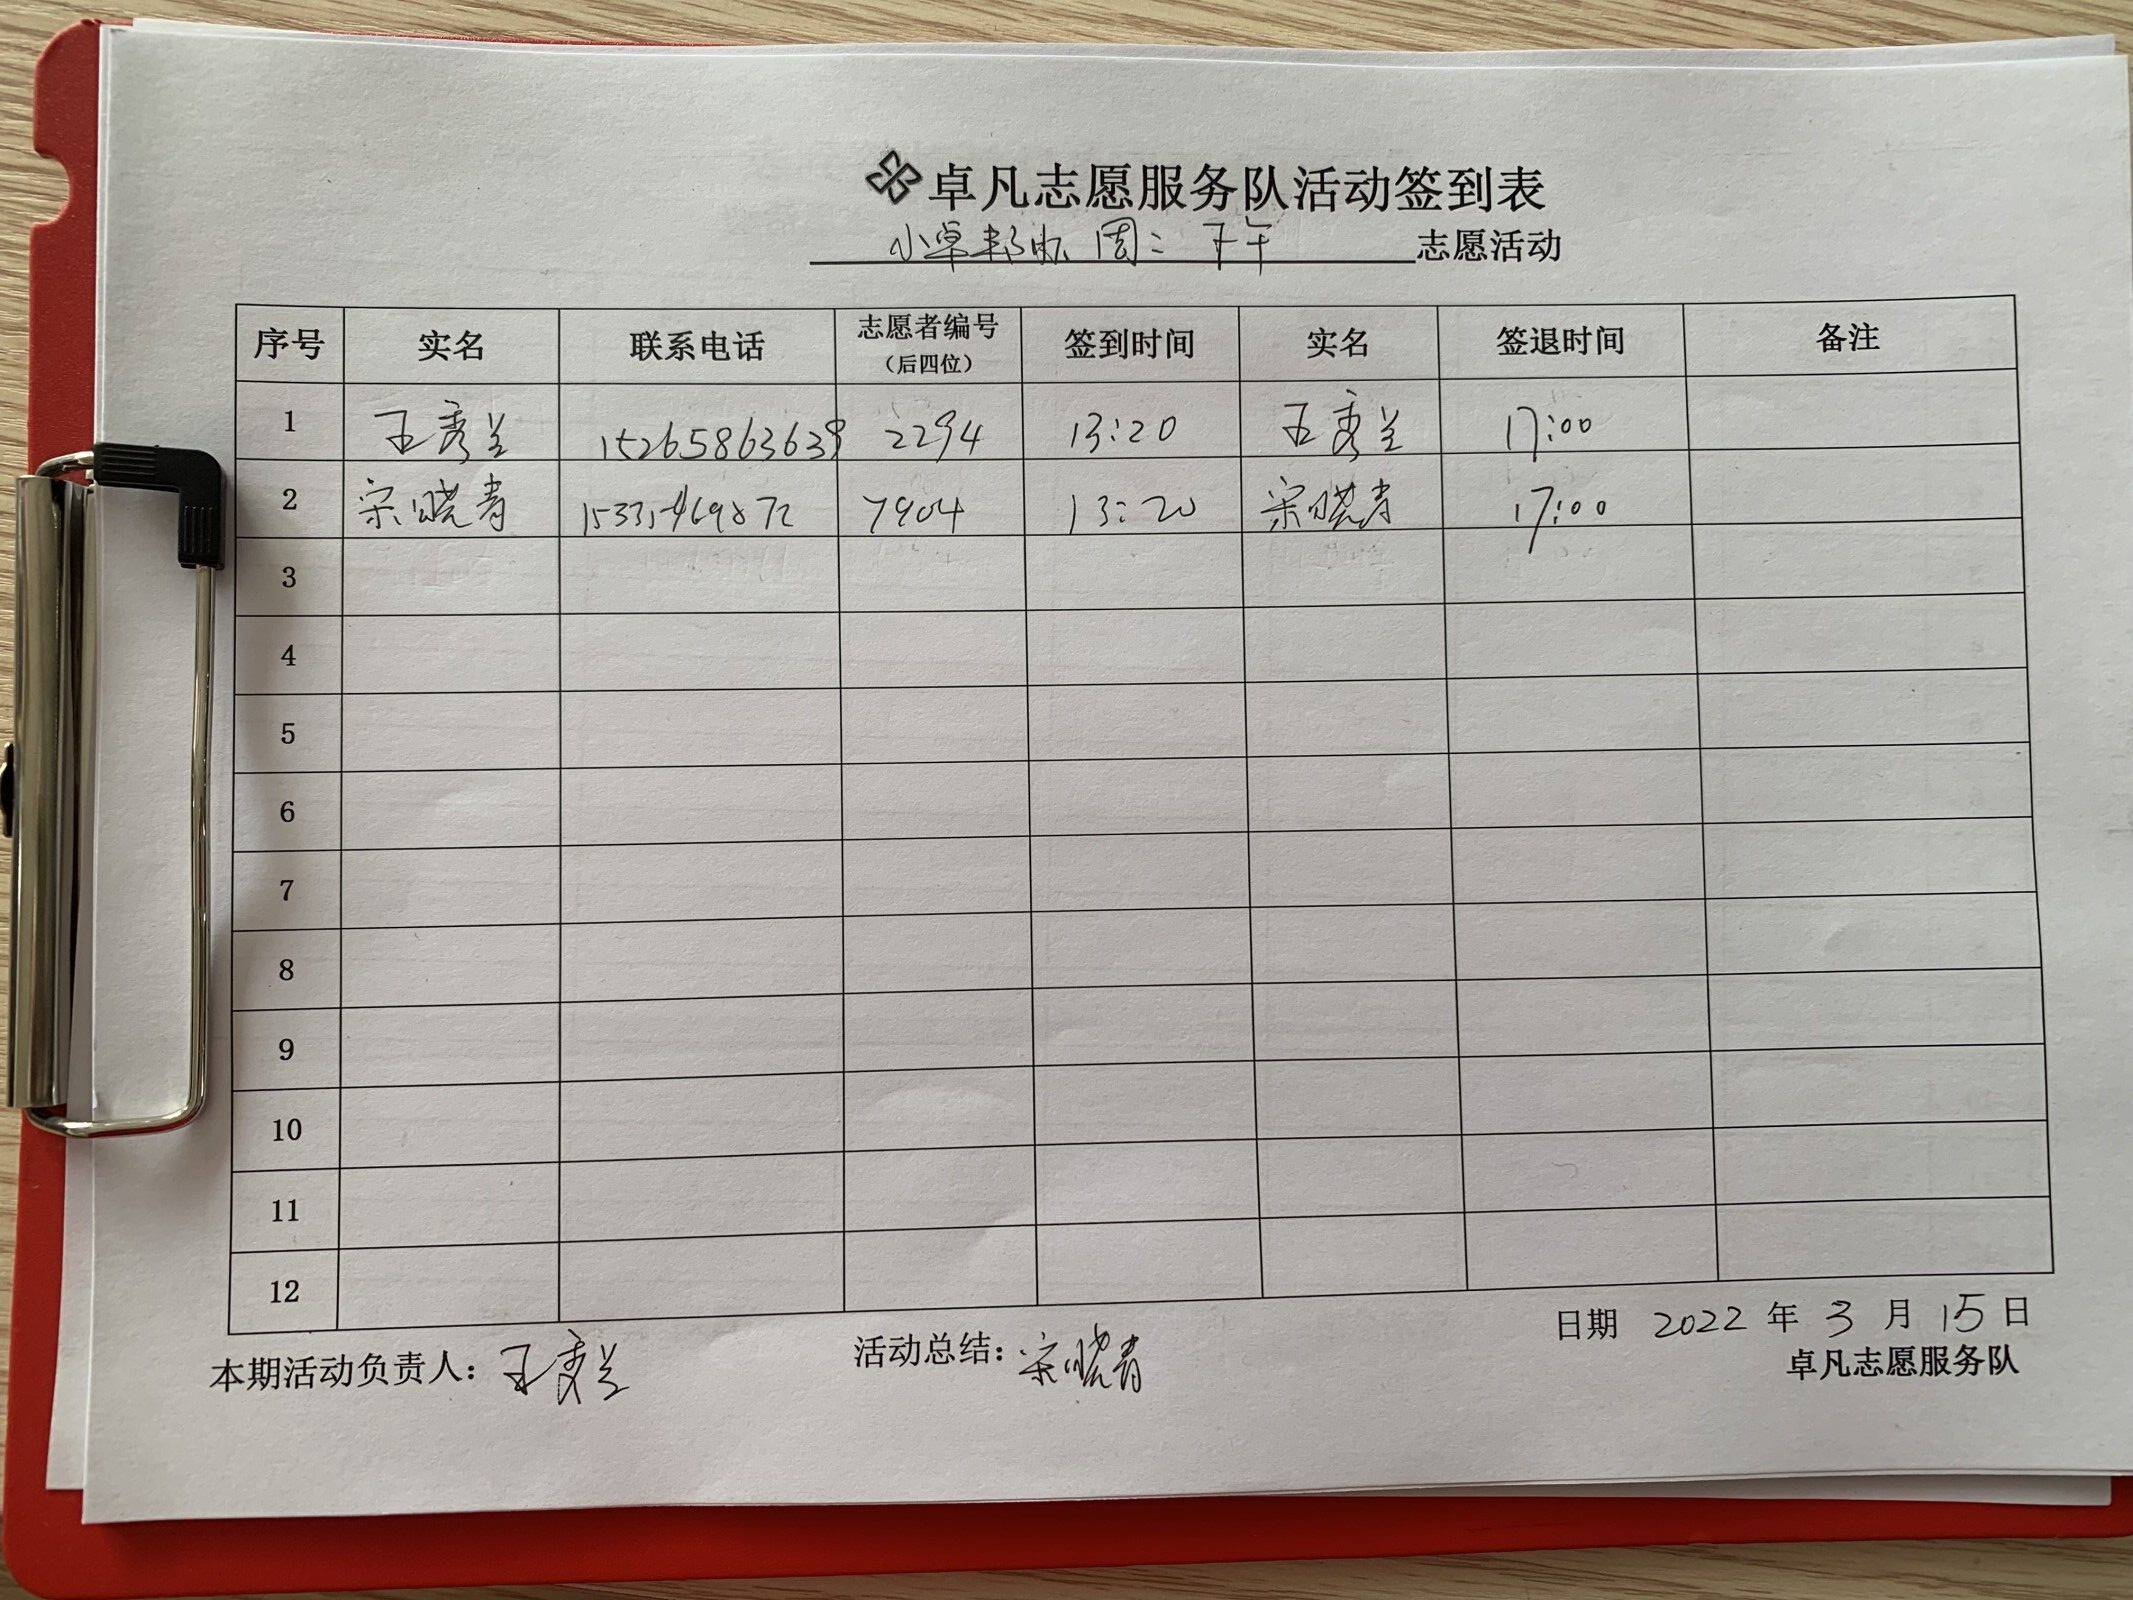 卓凡志愿服务队活动签到表
小卓邦办 周二 下午 志愿活动
序号 实名 联系电话 志愿者编号(后四位) 签到时间 实名 签退时间 备注
1 王秀兰 15265863639 2294 13:20 王秀兰 17:00
2 宋晓青 7904 13:20 宋晓青 17:00
3
4
5
6
7
8
9
10
11
12
日期 2022 年 3 月 15 日
本期活动负责人: 王秀兰 活动总结: 宋晓青 卓凡志愿服务队